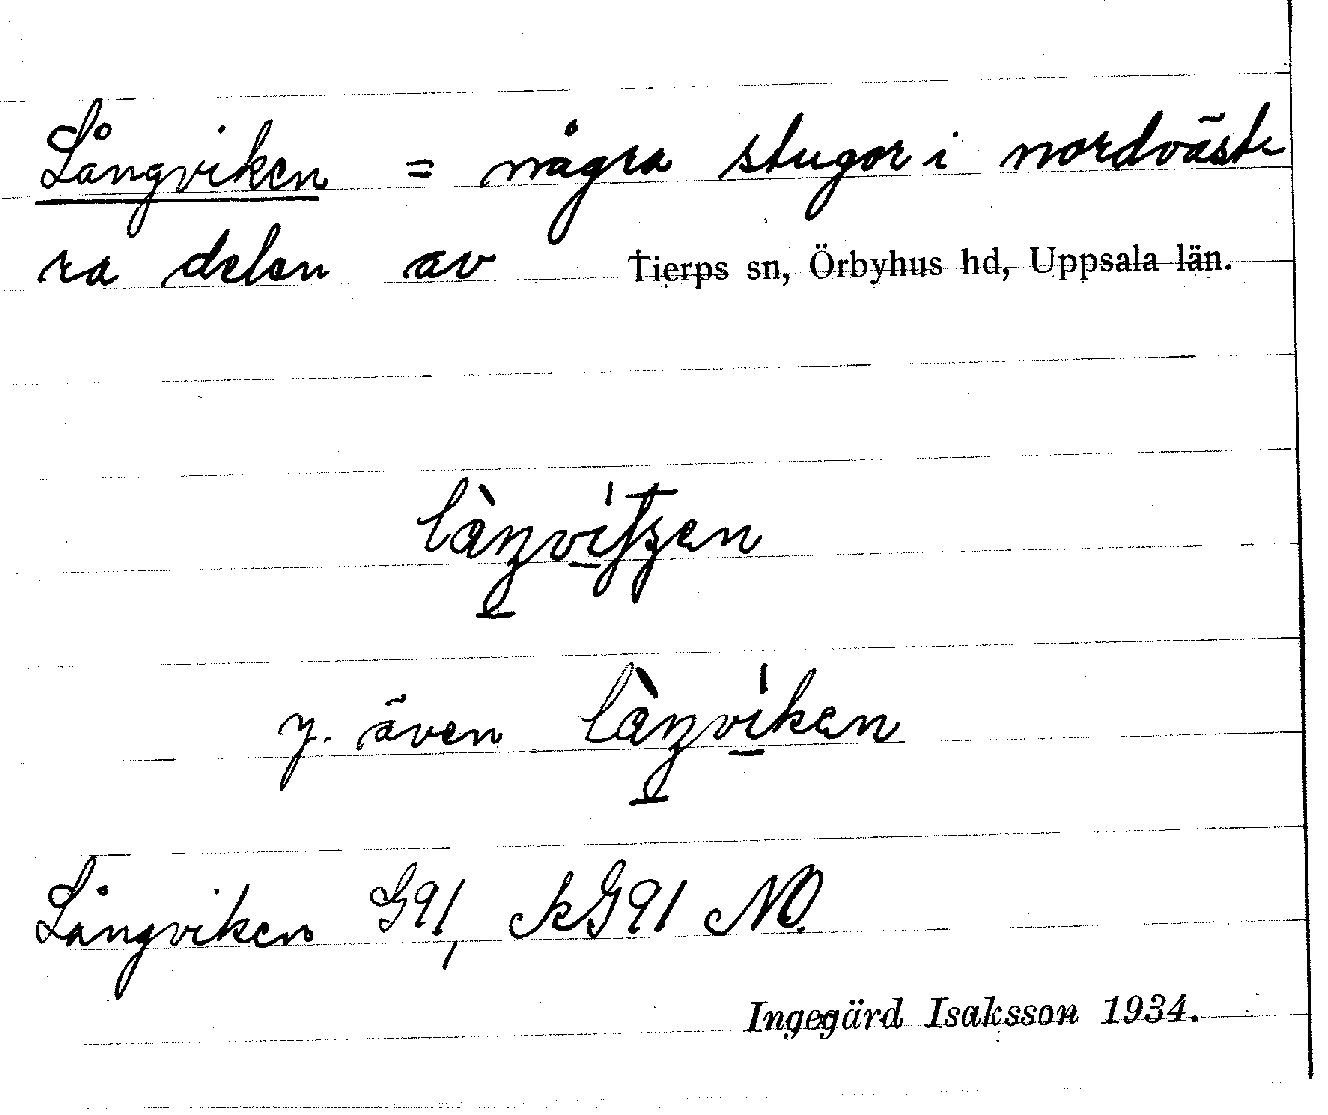 Långviken = några stugor i nordväst-
ra delen av Tierps sn, Örbyhus hd, Uppsala län.
y. även
Långviken G91, kG91 NO.
Ingegärd Isaksson 1934.